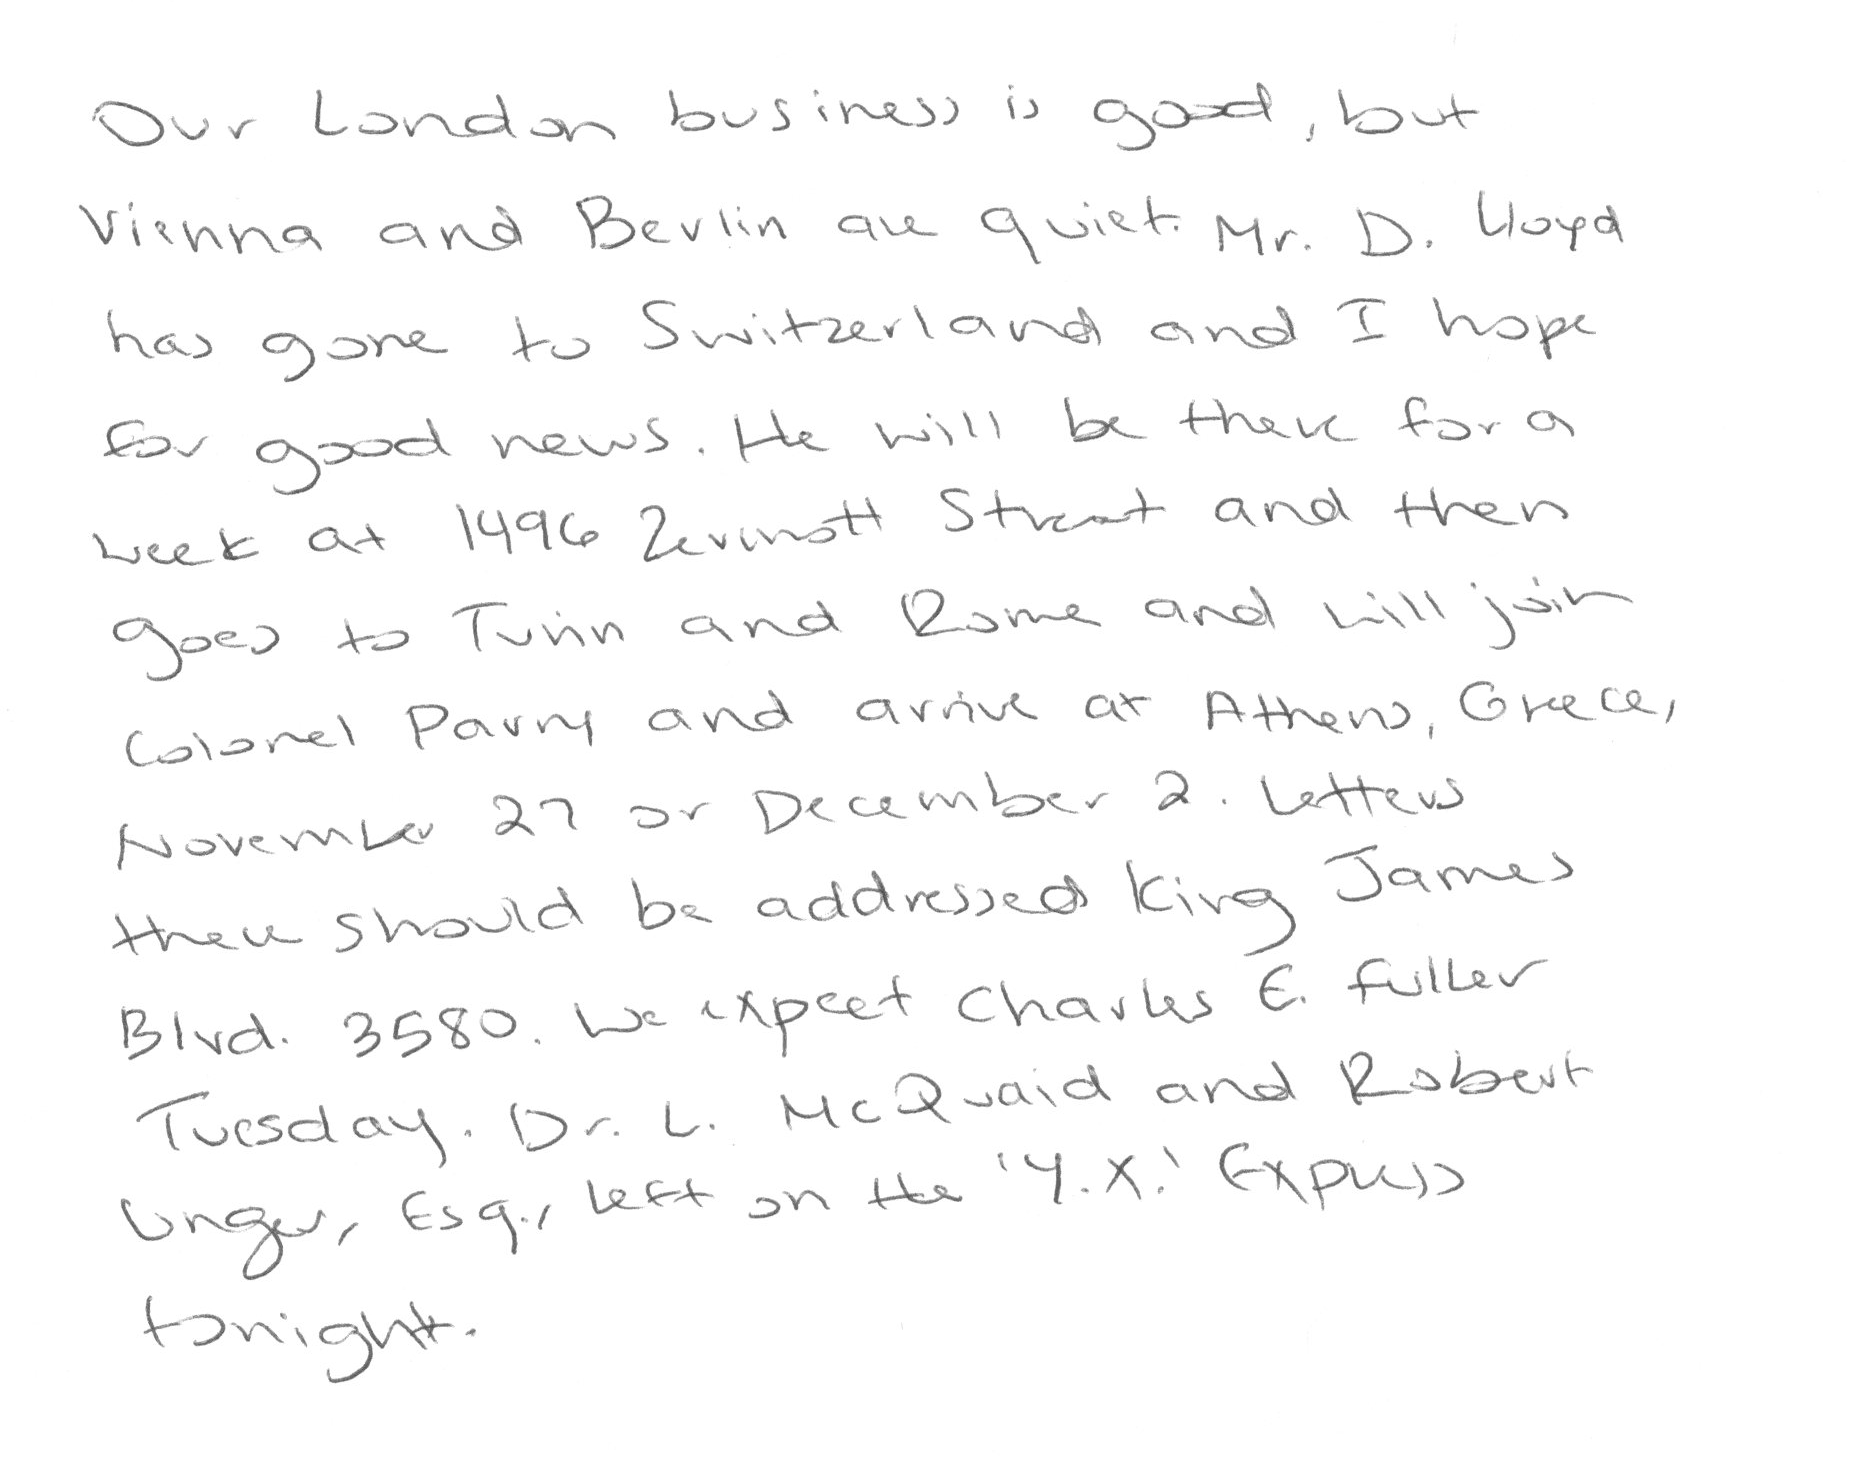 Our London business is good, but
Vienna and Berlin are quiet. Mr. D. Lloyd
has gone to Switzerland and I hope
for good news. He will be there for a
week at 1496 Zermott Street and then
goes to Turin and Rome and will join
Colonel Parry and arrive at Athens, Greece,
November 27 or December 2. Letters
there should be addressed King James
Blvd. 3580. We expect Charles E. Fuller
Tuesday. Dr. L. McQuaid and Robert
Unger, Esq., left on the 'Y.X.' Express
tonight.